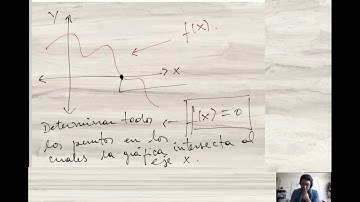 Y
f(x).
X
Determinar todos
los puntos en los
cuales la gráfica
intersecta al
eje x.
f(x) = 0